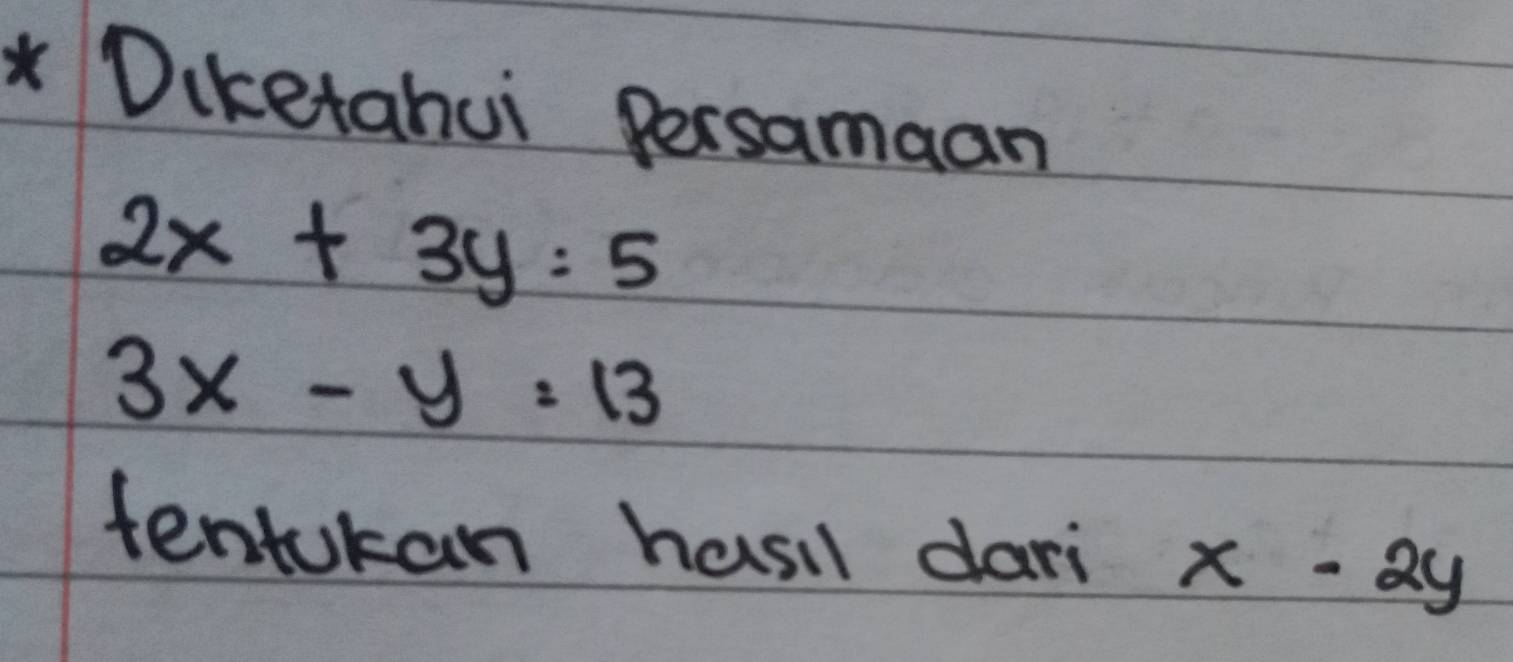 * Diketahui Persamaan
2x + 3y = 5
3x - y = 13
tentukan hasil dari x - 2y